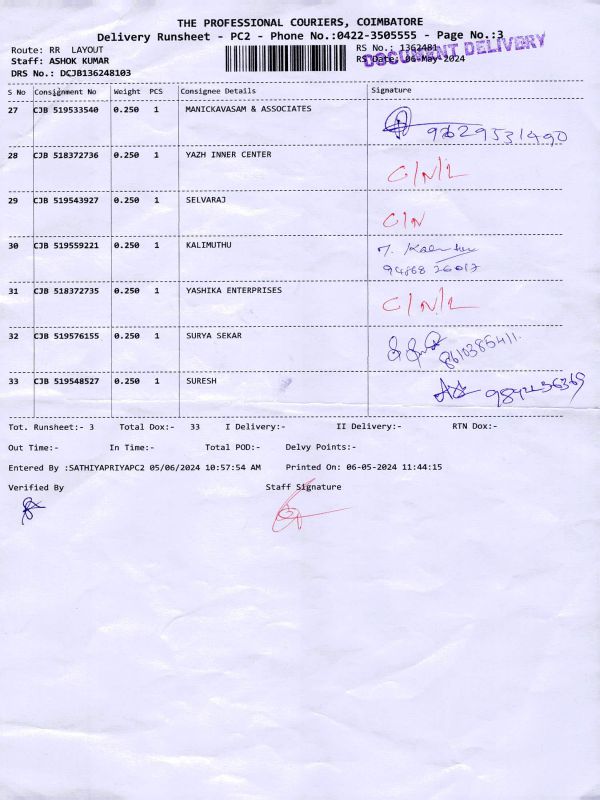 THE PROFESSIONAL COURIERS, COIMBATORE
Delivery Runsheet - PC2 - Phone No.:0422-3505555 - Page No.:3
Route: RR LAYOUT RS No.: 1362481
Staff: ASHOK KUMAR RS Date: 06-May-2024
DOCUMENT DELIVERY
DRS No.: DCJB136248103
S No Consignment No Weight PCS Consignee Details Signature
27 CJB 519533540 0.250 1 MANICKAVASAM & ASSOCIATES 9629531490
28 CJB 518372736 0.250 1 YAZH INNER CENTER C/N/L
29 CJB 519543927 0.250 1 SELVARAJ C/N
30 CJB 519559221 0.250 1 KALIMUTHU
94868 26012
31 CJB 518372735 0.250 1 YASHIKA ENTERPRISES C/N/L
32 CJB 519576155 0.250 1 SURYA SEKAR 8610385411.
33 CJB 519548527 0.250 1 SURESH
Tot. Runsheet:- 3 Total Dox:- 33 I Delivery:- II Delivery:- RTN Dox:-
Out Time:- In Time:- Total POD:- Delvy Points:-
Entered By :SATHIYAPRIYAPC2 05/06/2024 10:57:54 AM Printed On: 06-05-2024 11:44:15
Verified By Staff Signature